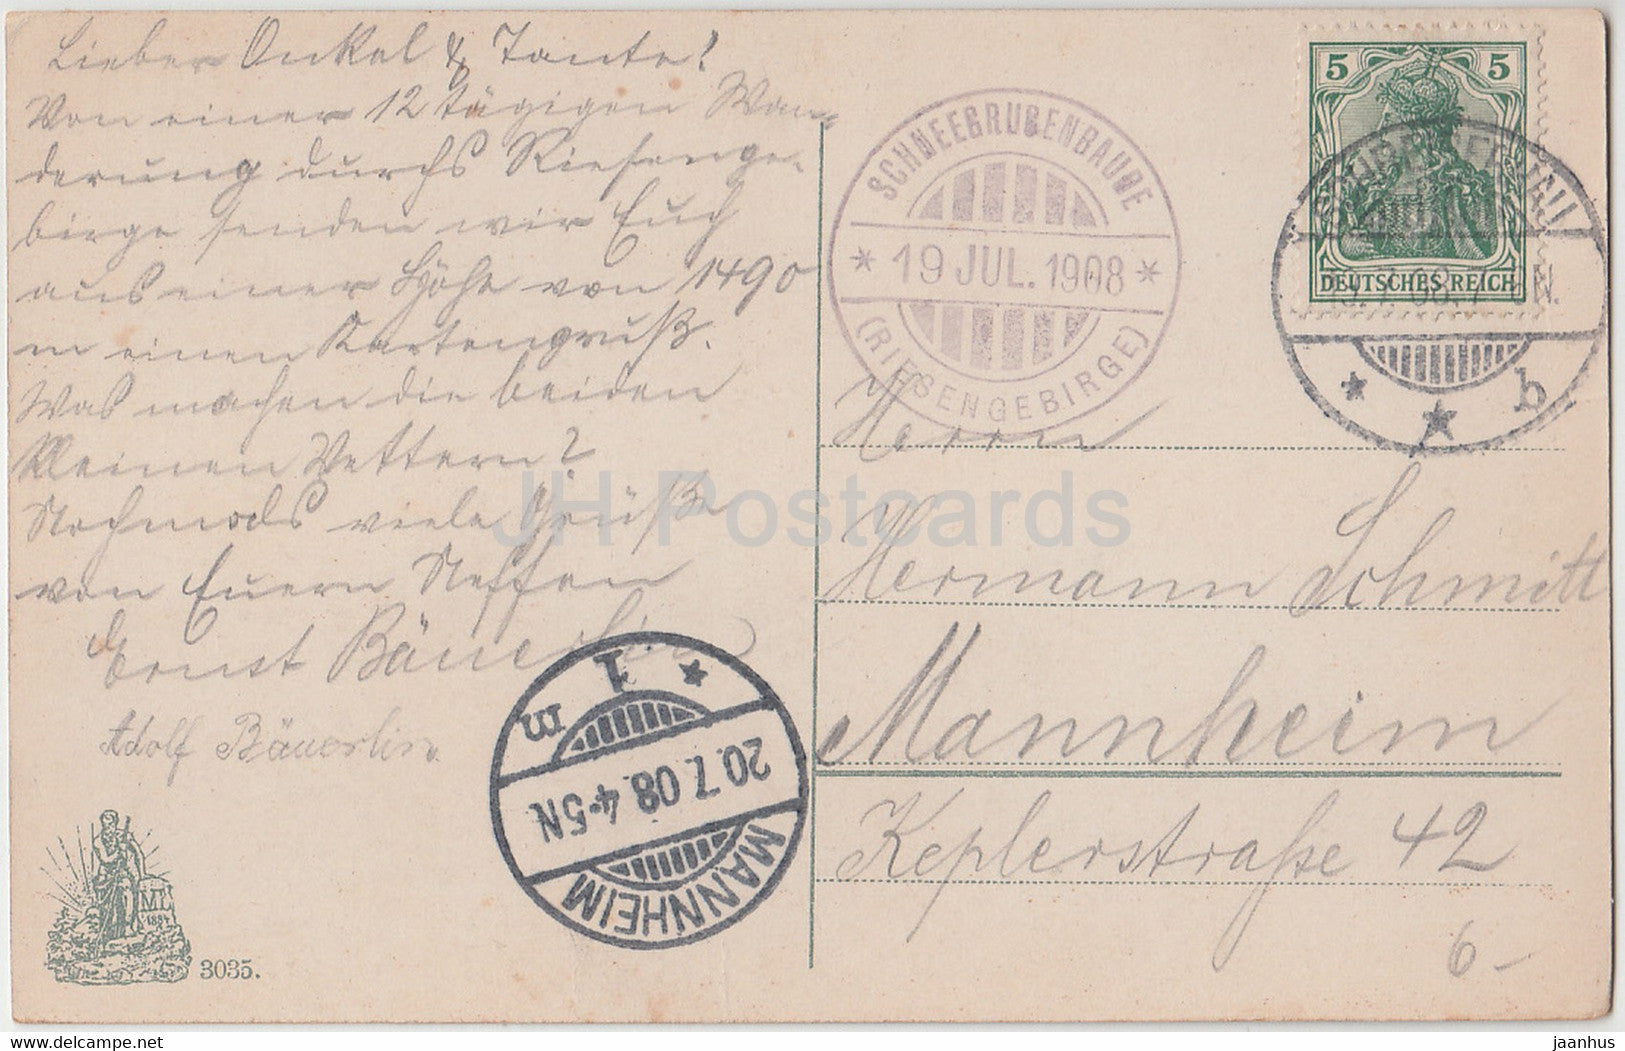 Lieber Onkel & Tante!
Von einer 12 tägigen Wan-
derung durchs Riesenge-
birge senden wir Euch
aus einer Höhe von 1490
m einen Kartengruß.
Was machen die beiden
kleinen Vettern?
Nochmals viele Grüße
von Euern Neffen
Ernst Bäuerlin
Adolf Bäuerlin.
3035.
ML
1884
MANNHEIM
20.7.08.4-5N
* 1 m
SCHNEEGRUBENBAUDE
* 19 JUL. 1908 *
(RIESENGEBIRGE)
5 5
DEUTSCHES REICH
* * b
Herrn
Hermann Schmitt
Mannheim
Keplerstraße 42
6-
JH Postcards
www.hippostcard.com jaanhus